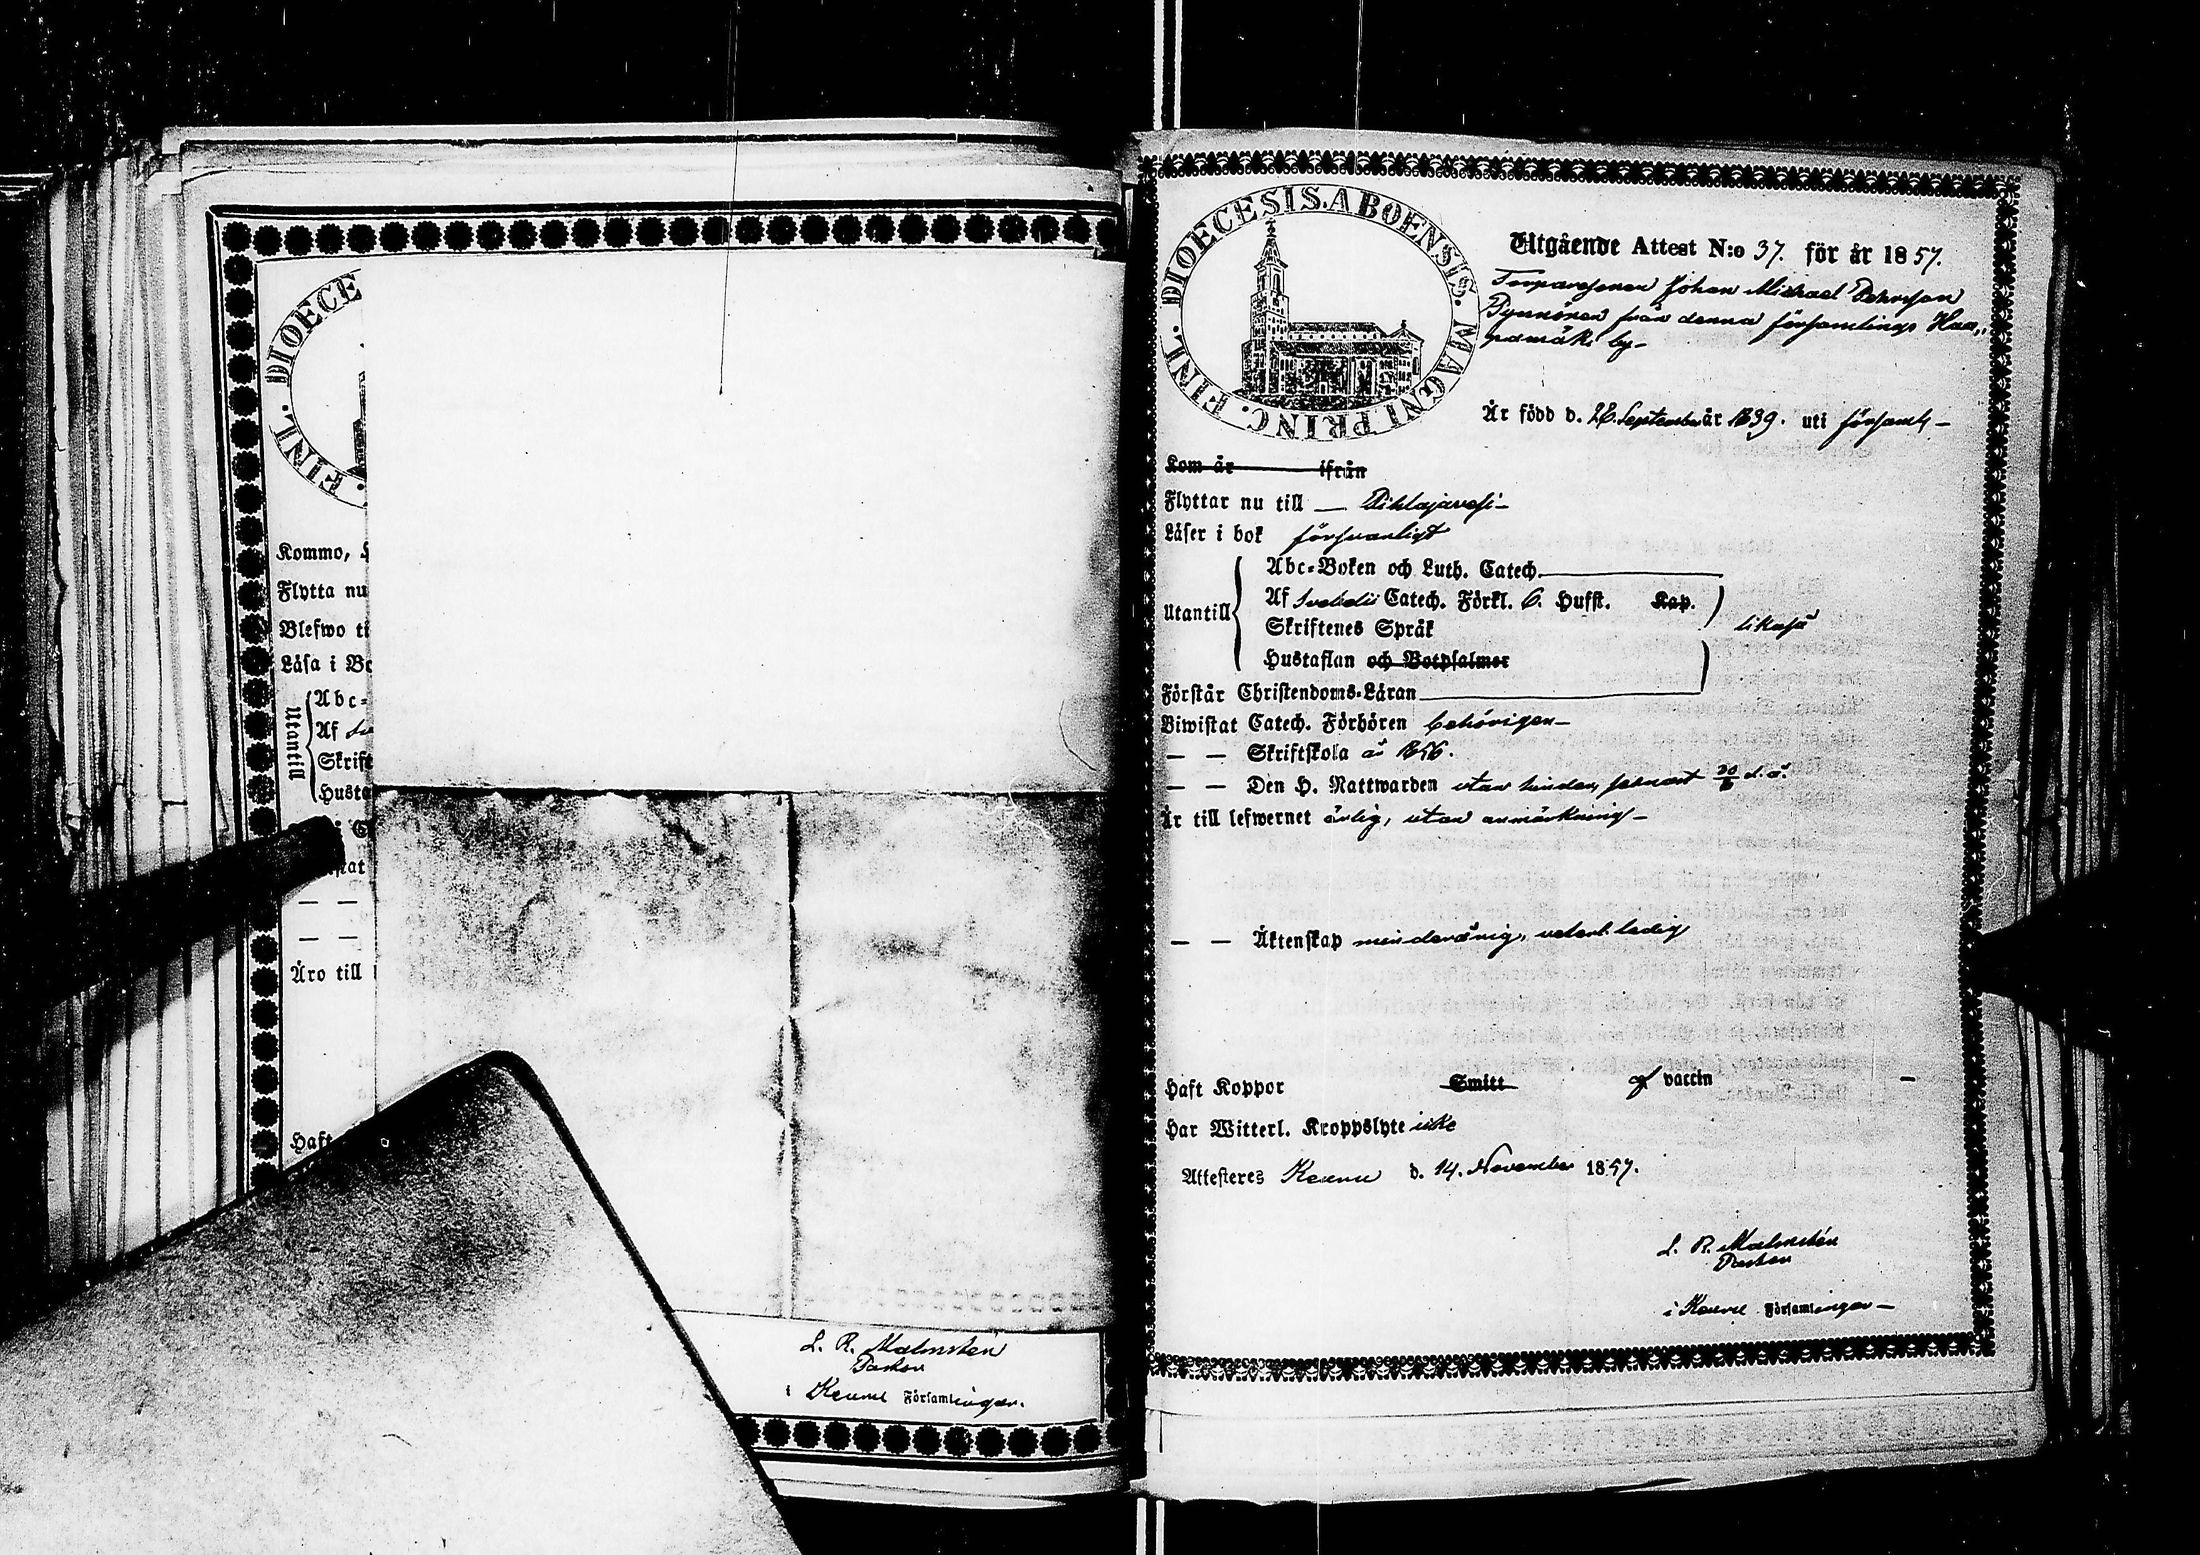 FINL. DIOECE
Kommo,
Flytta nu
Blefwo ti
Läsa i Bo
Utantill
Abc-
Af
Skrift
Husta
stat
— —
— —
Äro till
Haft
L. R. Malmstén
Pastor
i Keuru Församlingar.
FINL. DIOECESIS. ABOENSIS. MAGNI PRINC.
Utgående Attest N:o 37. för år 1857.
Torparesonen Johan Michael Pehrsson
Pynnönen från denna församlings Haa„
pamäki by –
Är född d. 28. September år 1839. uti församl –
Kom år ifrån
Flyttar nu till — Pihlajavesi –
Läser i bok försvarligt
Abc-Boken och Luth. Catech.
Utantill
Af Svebelii Catech. Förkl. 6. Hufst. Kap.
Skriftenes Språk
likaså
Hustaflan och Botpsalmer
Förstår Christendoms-Läran
Biwistat Catech. Förhören behörigen –
— — Skriftskola år 1856.
— — Den H. Nattwarden utan hinder, senast d. å.
Är till lefwernet ärlig, utan anmärkning –
— — Äktenskap minderårig, veterl. ledig
Haft Koppor Smitt af vaccin –
Har Witterl. Kroppslyte icke
Attesteres Keuru d. 14. November 1857.
L. R. Malmstén
Pastor
i Keuru Församlingar –